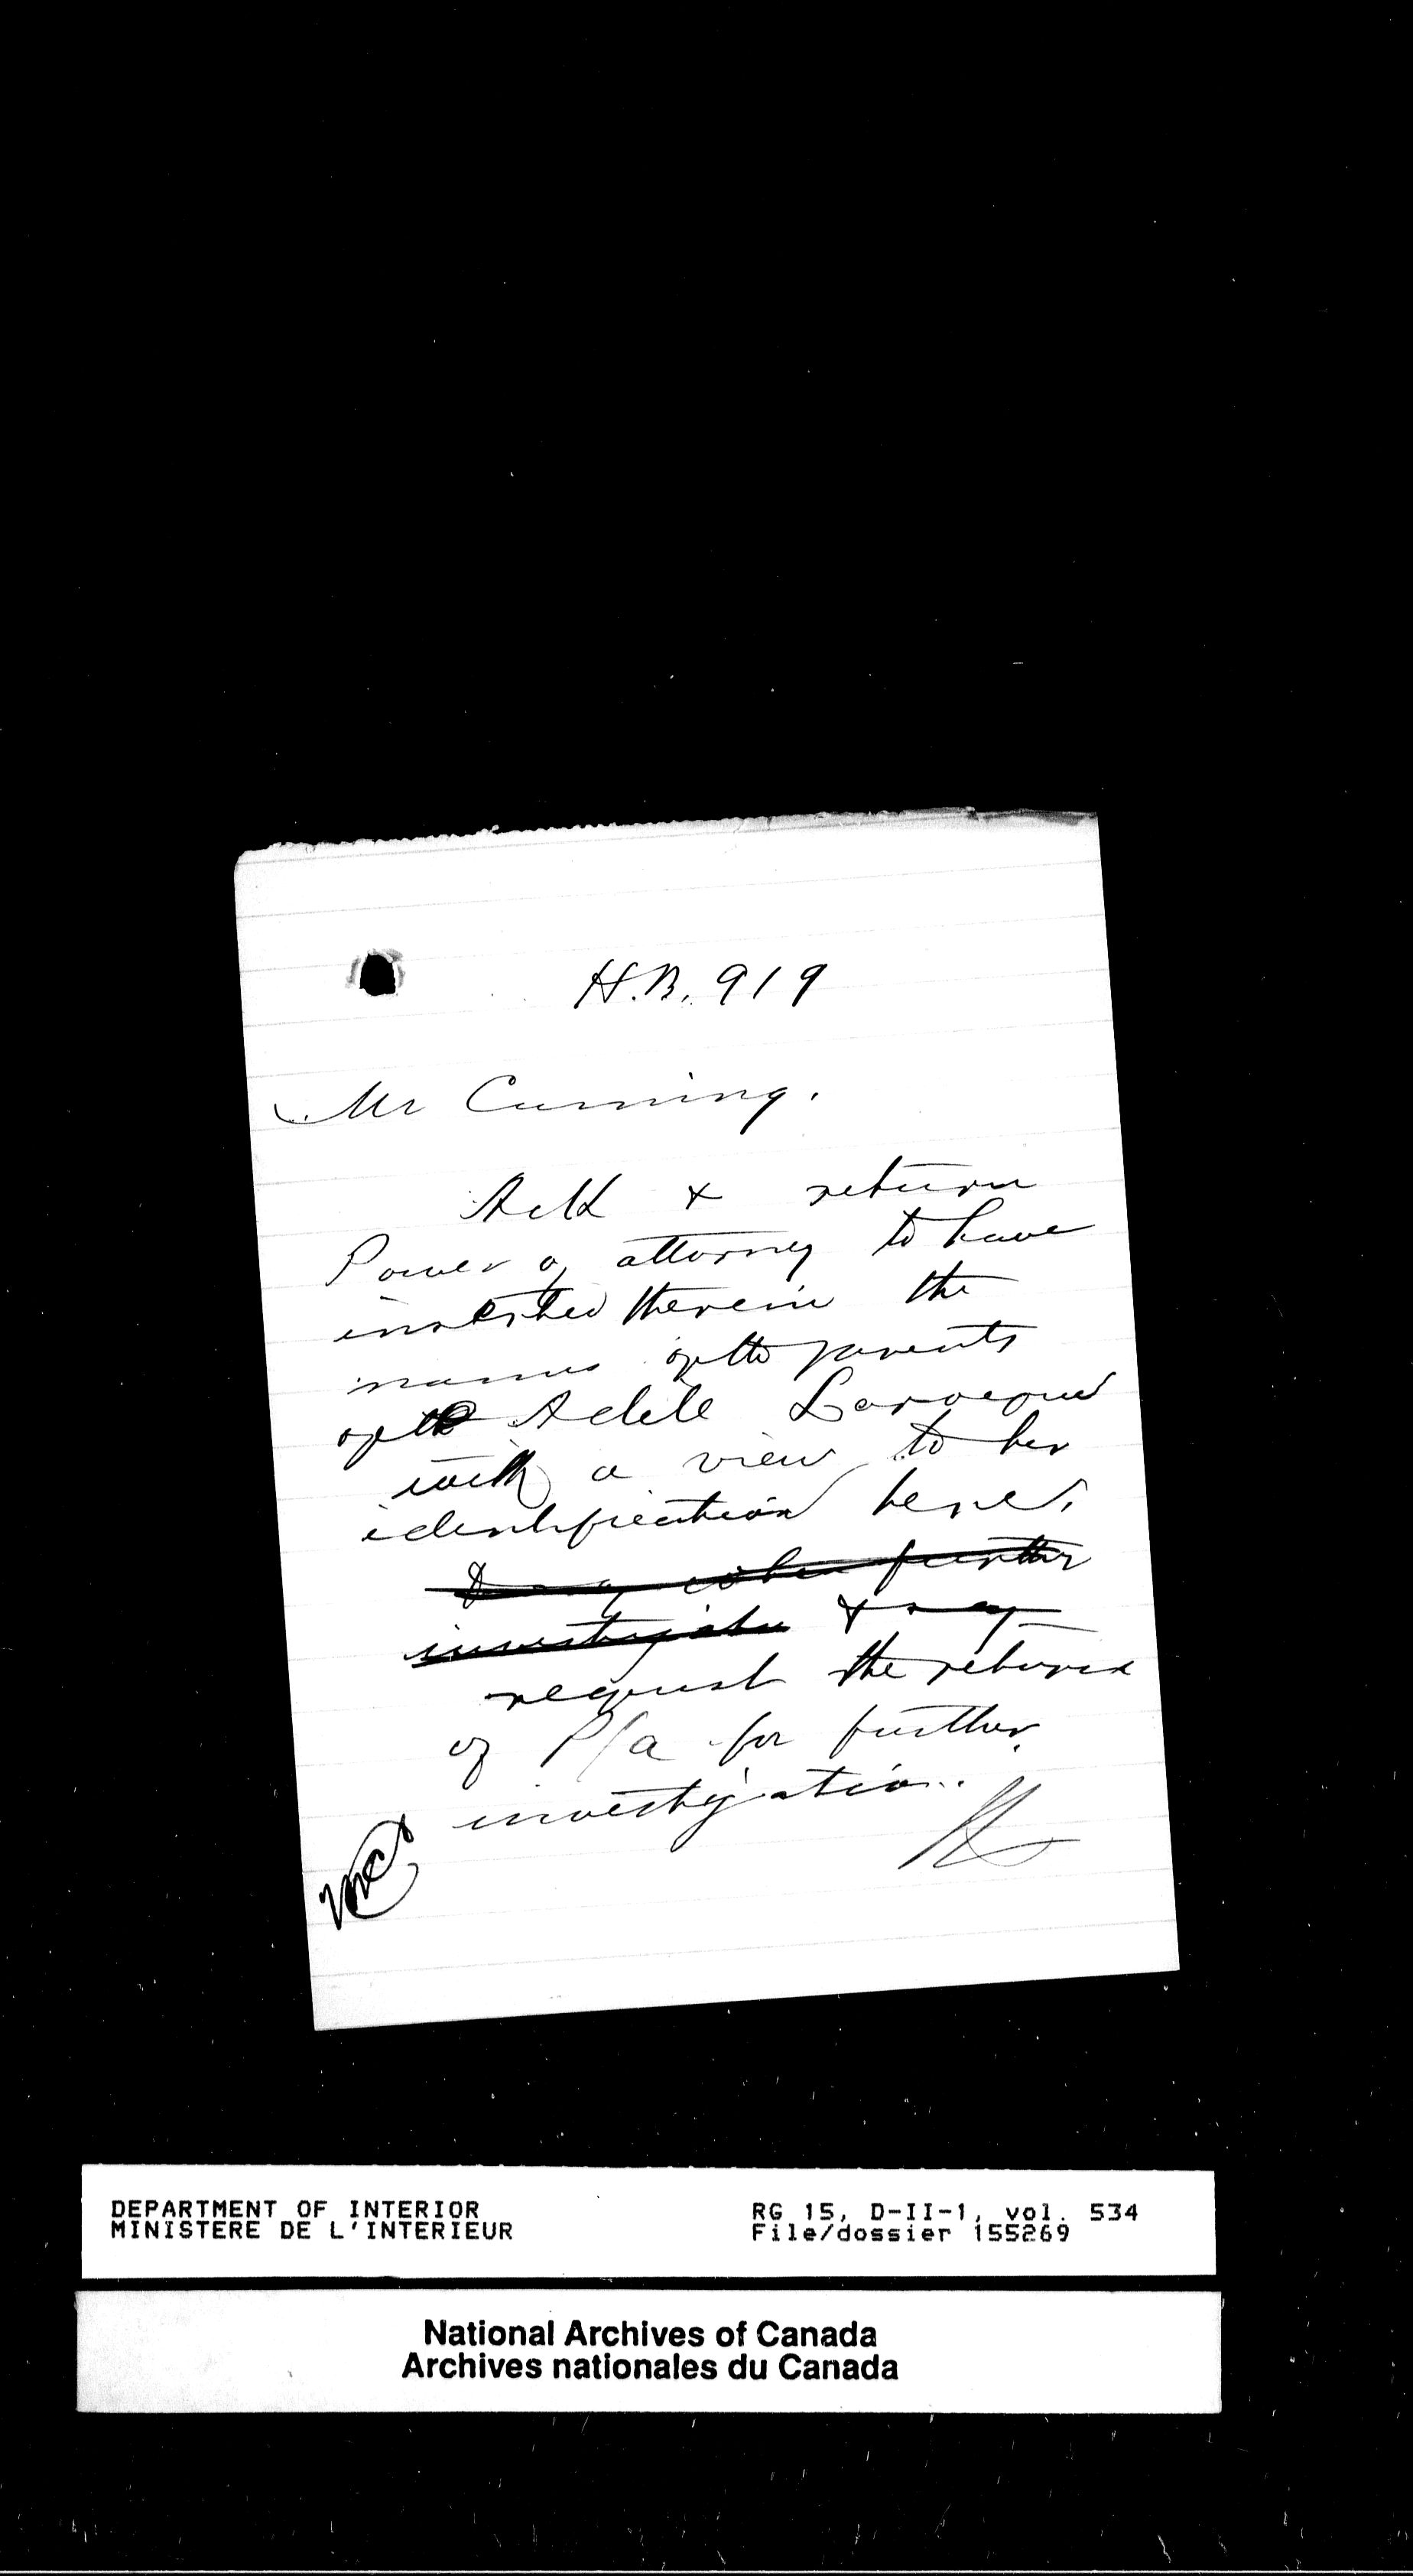 H.B. 919
Mr Cumming.
Ack & return
Power of attorney to have
inserted therein the
names of the parents
of Adele Larocque
with a view to her
identification here.
further
investigation & say
request the return
of P/a for further
investigation.
DEPARTMENT OF INTERIOR
MINISTERE DE L'INTERIEUR
RG 15, D-II-1, vol. 534
File/dossier 155269
National Archives of Canada
Archives nationales du Canada